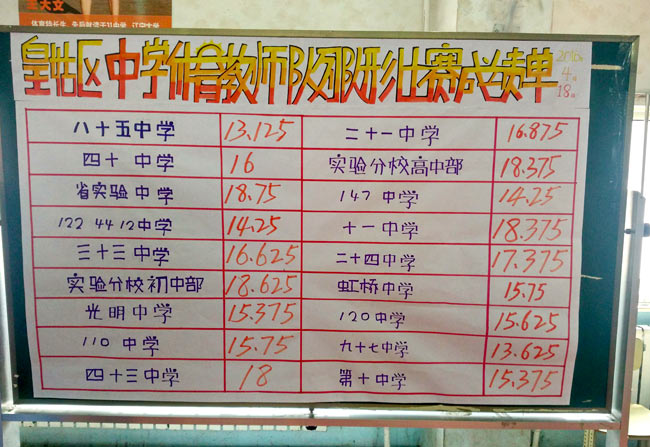 王天文
皇姑区中学体育教师队列队形比赛成绩单
2016.
4.
18.
八十五中学 13.125 二十一中学 16.875
四十 中学 16 实验分校高中部 18.375
省实验中学 18.75 147 中学 14.25
122 44 12中学 14.25 十一中学 18.375
三十三中学 16.625 二十四中学 17.375
实验分校初中部 18.625 虹桥中学 15.75
光明中学 15.375 120中学 15.625
110 中学 15.75 九十七中学 13.625
四十三中学 18 第十中学 15.375